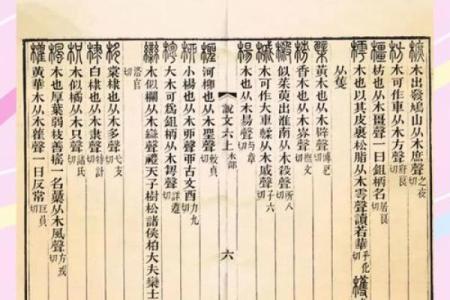 樜木出發鳩山从木庶聲之夜切
枋木可作車从木方聲府良切
橿枋也从木畺聲一曰鉏柄名居良切
樗木也以其皮裹松脂从木雩聲讀若華乎化切檴
檗黃木也从木辟聲博戹切
梤香木也从木岎聲撫文切
榝似茱萸出淮南从木殺聲所八切
槭木可作大車輮从木戚聲子六切
楊木也从木昜聲与章切
說文六上 木部
六
檉河柳也从木聖聲敕貞切
桺小楊也从木丣聲丣古文酉力九切
大木可爲鉏柄从木聲詳遵切
欒木似欄从木䜌聲禮天子樹松諸侯柏大夫欒士
洛官切
栘棠棣也从木多聲弋支切
棣白棣也从木隶聲特計切
枳木似橘从木只聲諸氏切
楓木也厚葉弱枝善搖一名从木風聲方戎切
權黃華木从木雚聲一曰反常巨員切